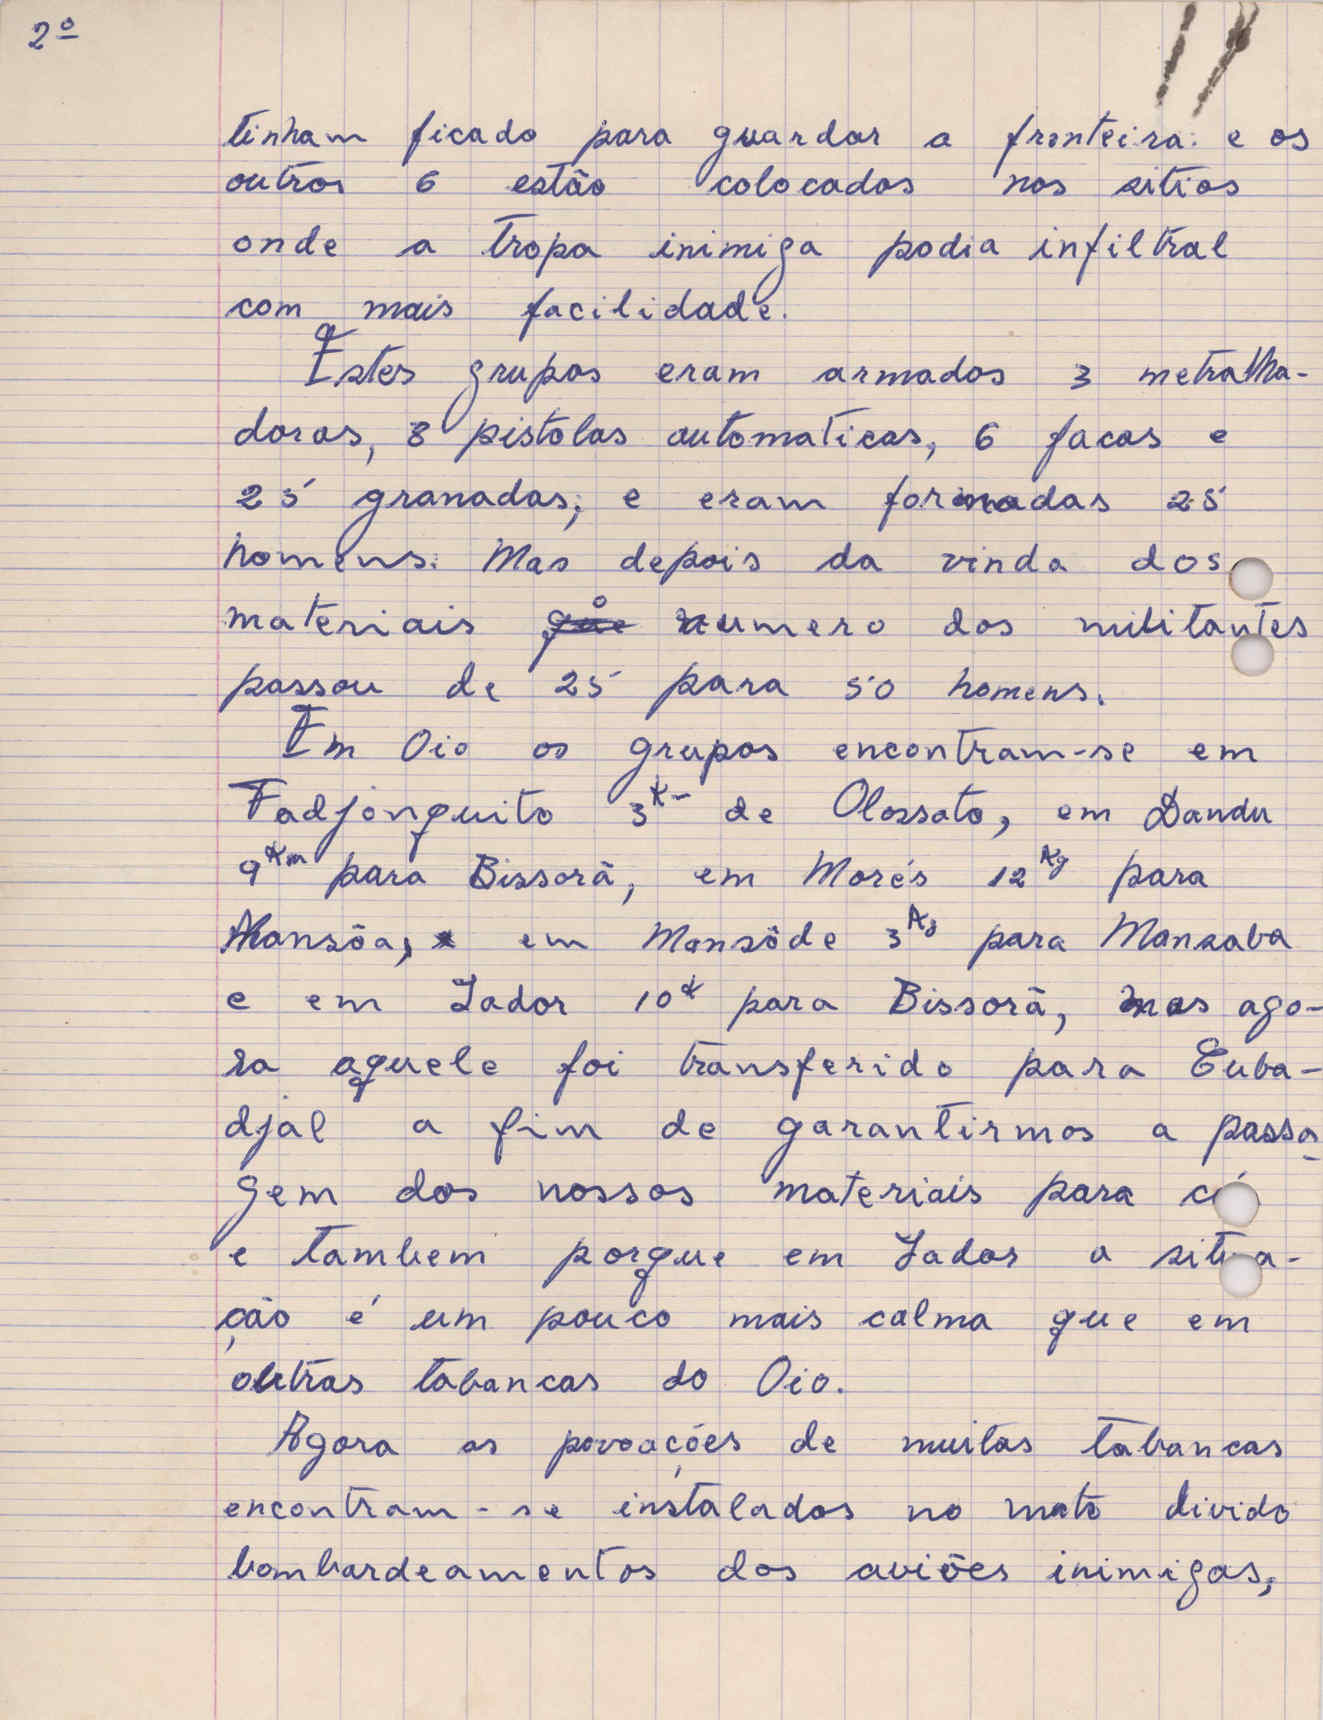 2º
tinham ficado para guardar a fronteira. e os
outros 6 estão colocados nos sitios
onde a tropa inimiga podia infiltral
com mais facilidade.
Estes grupos eram armados 3 metralha-
doras, 8 pistolas automaticas, 6 facas e
25 granadas, e eram formadas 25
homens. Mas depois da vinda dos
materiais que o numero dos militantes
passou de 25 para 50 homens.
Em Oio os grupos encontram-se em
Fadjonquito 3K- de Olossato, em Dandu
9Km para Bissorã, em Morés 12Kg para
Mansôa, em Mansôde 3Kg para Mansaba
e em Iador 10K para Bissorã, mas ago-
ra aquele foi transferido para Cuba-
djal a fim de garantirmos a passa-
gem dos nossos materiais para cá
e tambem porque em Iador a situa-
ção é um pouco mais calma que em
outras tabancas do Oio.
Agora as povoações de muitas tabancas
encontram-se instalados no mato divido
bombardeamentos dos aviões inimigos,